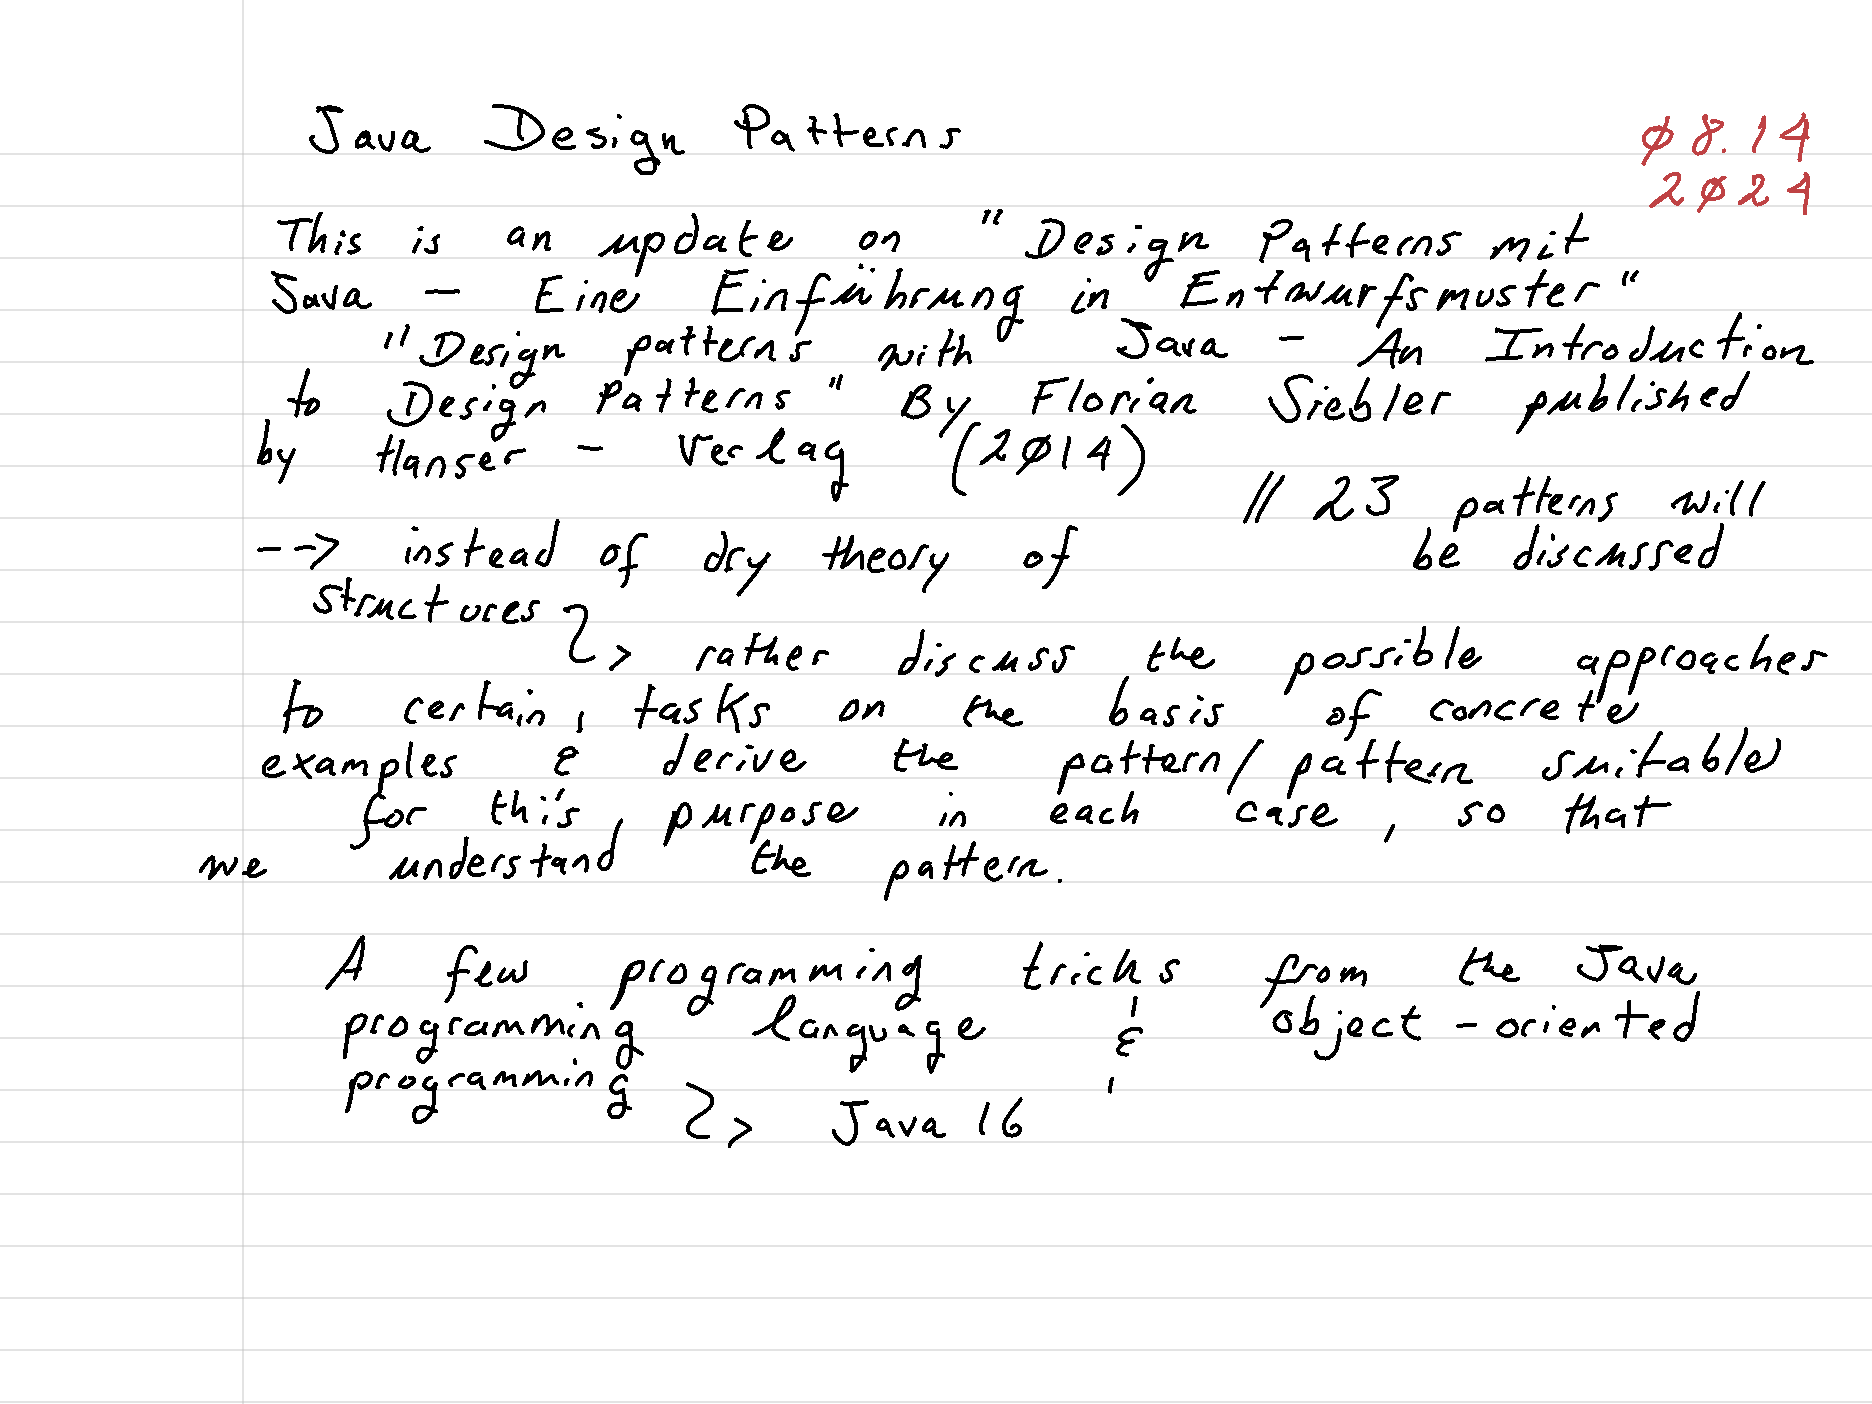 Java Design Patterns
ø8.14
2ø24
This is an update on "Design Patterns mit
Java – Eine Einführung in Entwurfsmuster"
"Design patterns with Java – An Introduction
to Design Patterns" By Florian Siebler published
by Hanser – Verlag (2ø14)
// 23 patterns will
be discussed
--> instead of dry theory of
structures
> rather discuss the possible approaches
to certain, tasks on the basis of concrete
examples & derive the pattern/pattern suitable
for this purpose in each case, so that
we understand the pattern.
A few programming tricks from the Java
programming language & object-oriented
programming
> Java 16